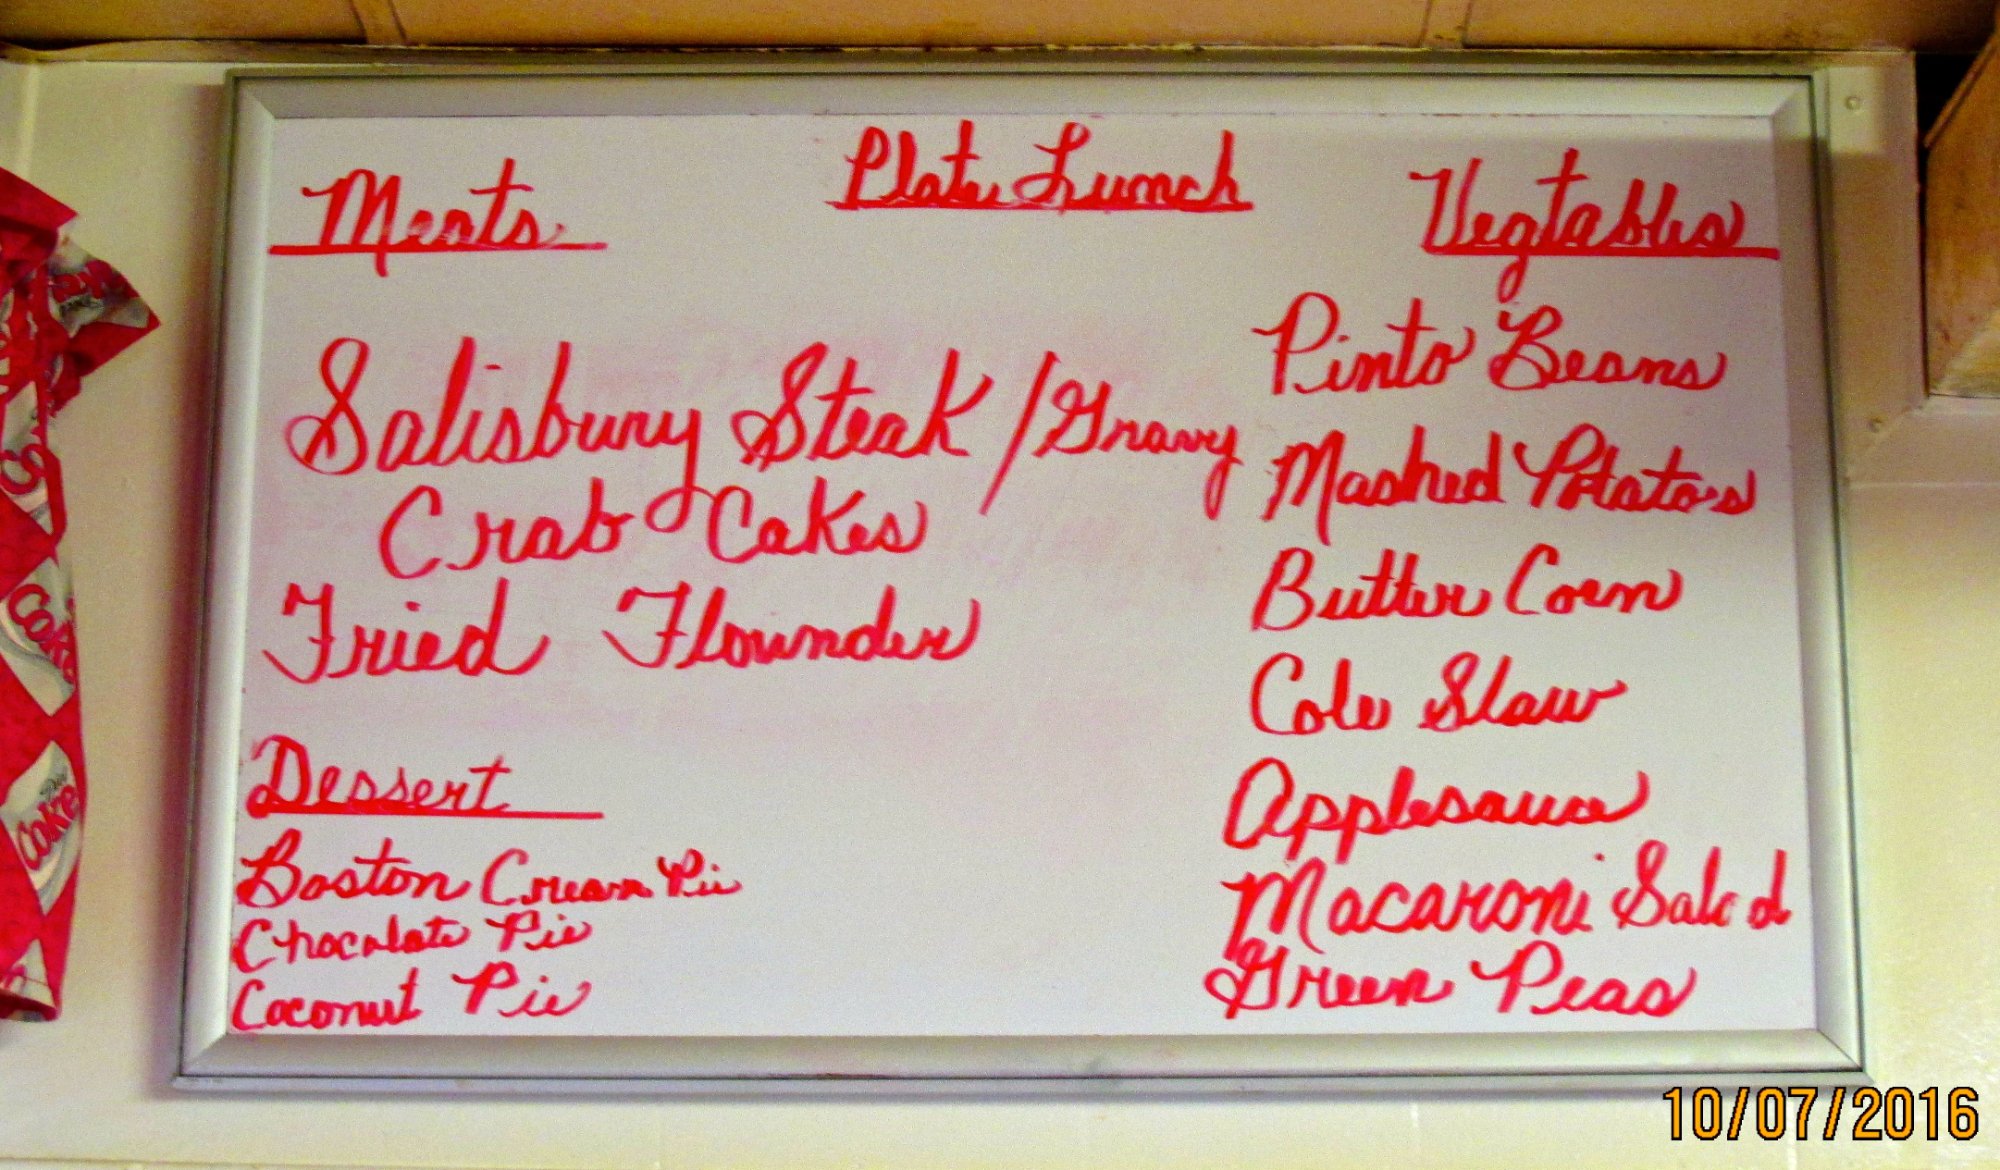 Plate Lunch
Meats
Salisbury Steak / Gravy
Crab Cakes
Fried Flounder
Dessert
Boston Cream Pie
Chocolate Pie
Coconut Pie
Vegtables
Pinto Beans
Mashed Potatoes
Butter Corn
Cole Slaw
Applesauce
Macaroni Salad
Green Peas
Coke
Coke
10/07/2016